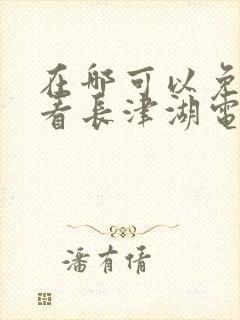 在哪可以免
看長津湖電
潘有倩